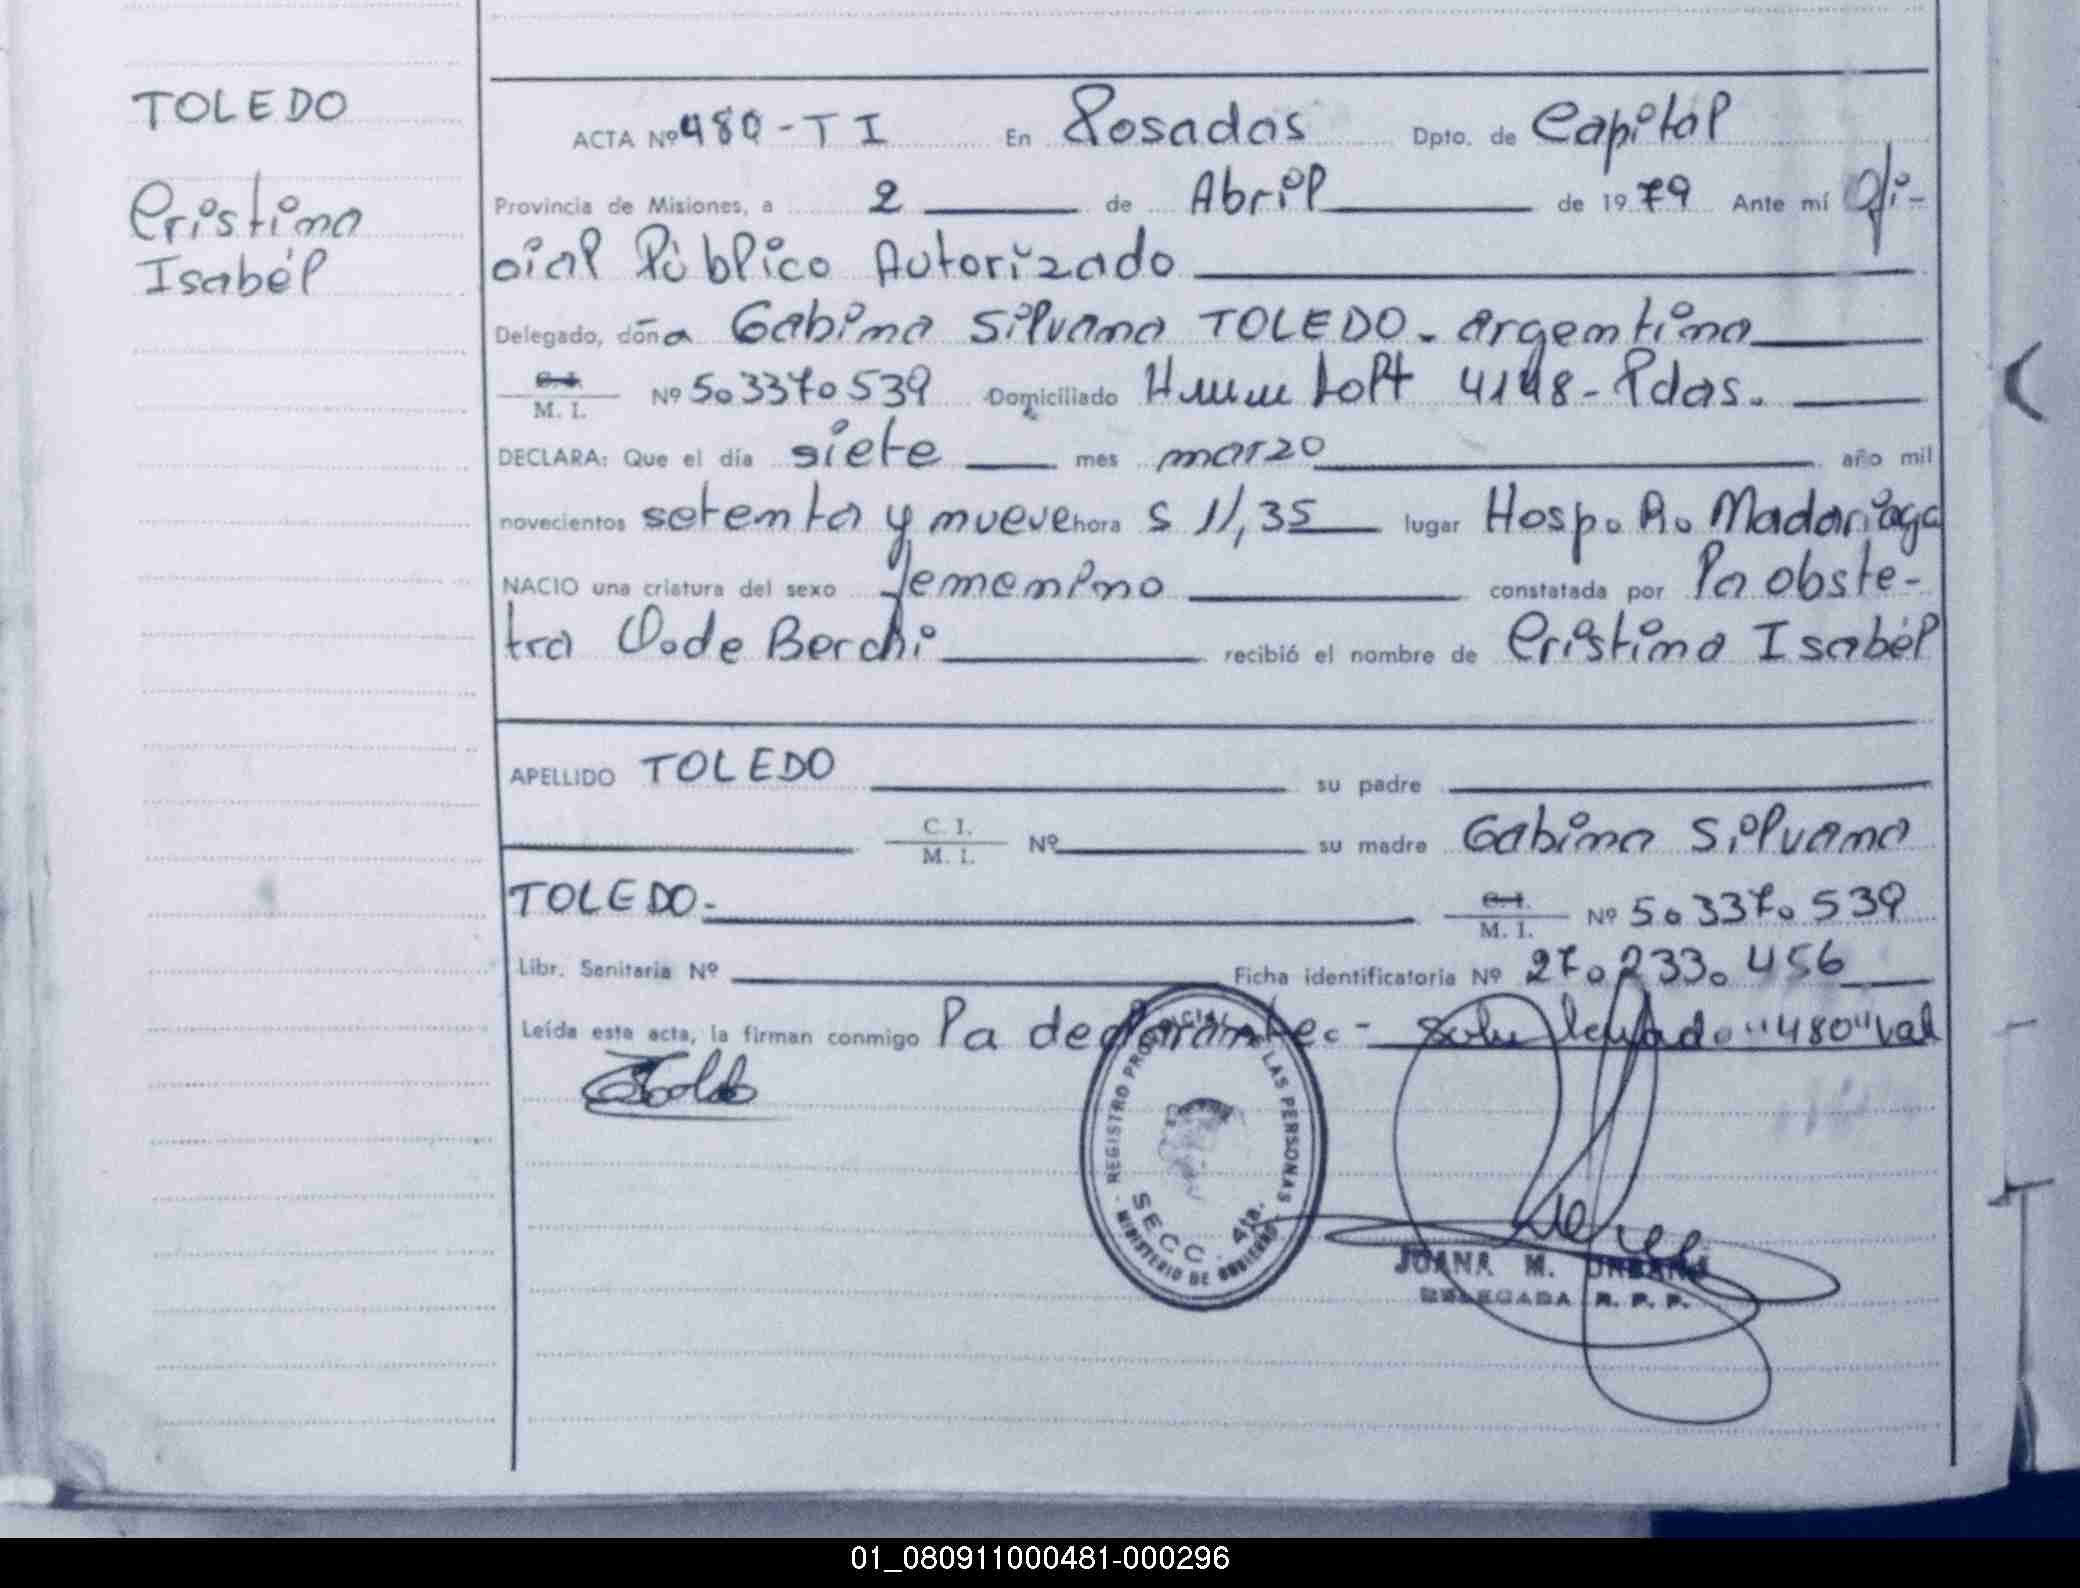 TOLEDO
Cristina
Isabél
ACTA Nº 480-T I En Posadas Dpto. de Capital
Provincia de Misiones, a 2 de Abril de 1979 Ante mí Ofi-
cial Público Autorizado
Delegado, doña Gabina Silvana TOLEDO - argentina
C. I.
M. I. Nº 5.337.539 Domiciliado 4148 - Pdas.
DECLARA: Que el día siete mes marzo año mil
novecientos setenta y nueve hora s 11,35 lugar Hosp. R. Madariaga
NACIO una criatura del sexo femenino constatada por la obste-
tra de Berchi recibió el nombre de Cristina Isabél
APELLIDO TOLEDO su padre
C. I.
M. I. Nº su madre Gabina Silvana
TOLEDO.- C. I.
M. I. Nº 5.337.539
Libr. Sanitaria Nº Ficha identificatoria Nº 27.233.456
Leída esta acta, la firman conmigo la declarante.- "480" vale
REGISTRO PROVINCIAL DE LAS PERSONAS
SECC. 4ta.
MINISTERIO DE GOBIERNO
JUANA M.
DELEGADA R. P. P.
01_080911000481-000296